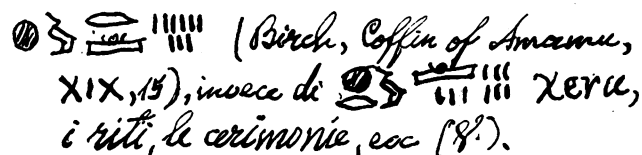 (Birch, Coffin of Amamu,
XIX, 15), invece di χeru,
i riti, le cerimonie, ecc (8°.).